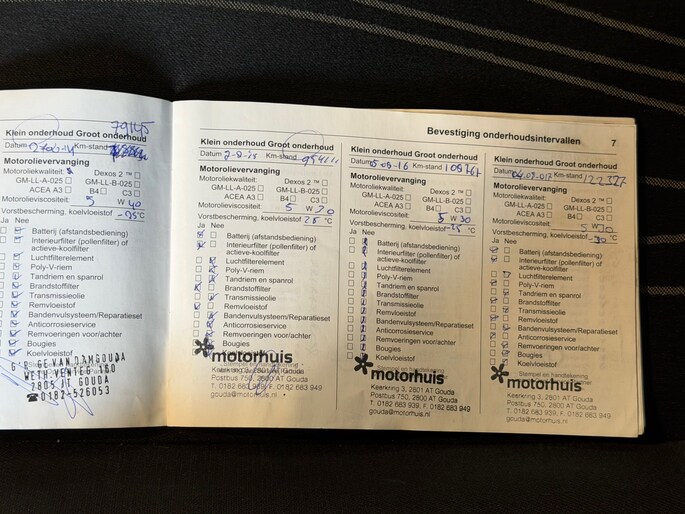 79145
Klein onderhoud Groot onderhoud
Datum Km-stand
Motorolievervanging
Motoroliekwaliteit: Dexos 2 ™ ☐
GM-LL-A-025 ☐ GM-LL-B-025 ☐
ACEA A3 ☐ B4 ☐ C3 ☐
Motorolieviscositeit: 5 W 40
Vorstbescherming, koelvloeistof -25 °C
Ja Nee
Batterij (afstandsbediening)
Interieurfilter (pollenfilter) of
actieve-koolfilter
Luchtfilterelement
Poly-V-riem
Tandriem en spanrol
Brandstoffilter
Transmissieolie
Remvloeistof
Bandenvulsysteem/Reparatieset
Anticorrosieservice
Remvoeringen voor/achter
Bougies
Koelvloeistof
2805 JT GOUDA
☎0182-526053
Bevestiging onderhoudsintervallen 7
Klein onderhoud Groot onderhoud
Datum Km-stand
Motorolievervanging
Motoroliekwaliteit: Dexos 2 ™ ☐
GM-LL-A-025 ☐ GM-LL-B-025 ☐
ACEA A3 ☐ B4 ☐ C3 ☐
Motorolieviscositeit: 5 W 30
Vorstbescherming, koelvloeistof 25 °C
Ja Nee
Batterij (afstandsbediening)
Interieurfilter (pollenfilter) of
actieve-koolfilter
Luchtfilterelement
Poly-V-riem
Tandriem en spanrol
Brandstoffilter
Transmissieolie
Remvloeistof
Bandenvulsysteem/Reparatieset
Anticorrosieservice
Remvoeringen voor/achter
Bougies
motorhuis
Keerkring 3, 2801 AT Gouda
Postbus 750, 2800 AT Gouda
T. 0182 683 939, F. 0182 683 949
gouda@motorhuis.nl
Klein onderhoud Groot onderhoud
Datum 05-09-16 Km-stand
Motorolievervanging
Motoroliekwaliteit: Dexos 2 ™ ☐
GM-LL-A-025 ☐ GM-LL-B-025 ☐
ACEA A3 ☐ B4 ☐ C3 ☐
Motorolieviscositeit: 5 W 30
Vorstbescherming, koelvloeistof -35 °C
Ja Nee
Batterij (afstandsbediening)
Interieurfilter (pollenfilter) of
actieve-koolfilter
Luchtfilterelement
Poly-V-riem
Tandriem en spanrol
Brandstoffilter
Transmissieolie
Remvloeistof
Bandenvulsysteem/Reparatieset
Anticorrosieservice
Remvoeringen voor/achter
Bougies
Koelvloeistof
Stempel en handtekening
motorhuis
Keerkring 3, 2801 AT Gouda
Postbus 750, 2800 AT Gouda
T. 0182 683 939, F. 0182 683 949
gouda@motorhuis.nl
Klein onderhoud Groot onderhoud
Datum Km-stand 122327
Motorolievervanging
Motoroliekwaliteit: Dexos 2 ™ ☐
GM-LL-A-025 ☐ GM-LL-B-025 ☐
ACEA A3 ☐ B4 ☐ C3 ☐
Motorolieviscositeit: 5 W 30
Vorstbescherming, koelvloeistof -30 °C
Ja Nee
Batterij (afstandsbediening)
Interieurfilter (pollenfilter) of
actieve-koolfilter
Luchtfilterelement
Poly-V-riem
Tandriem en spanrol
Brandstoffilter
Transmissieolie
Remvloeistof
Bandenvulsysteem/Reparatieset
Anticorrosieservice
Remvoeringen voor/achter
Bougies
Koelvloeistof
Stempel en handtekening
motorhuis
Keerkring 3, 2801 AT Gouda
Postbus 750, 2800 AT Gouda
T. 0182 683 959, F. 0182 683 949
gouda@motorhuis.nl